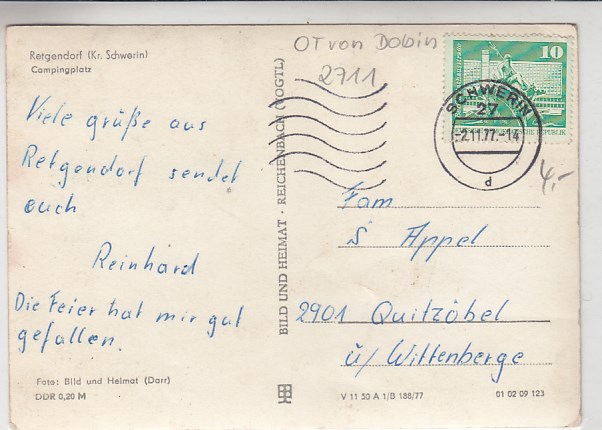 Retgendorf (Kr. Schwerin)
Campingplatz
Viele grüße aus
Retgendorf sendet
euch
Reinhard
Die Feier hat mir gut
gefallen.
Foto: Bild und Heimat (Darr)
DDR 0,20 M
BILD UND HEIMAT · REICHENBACH (VOGTL)
OT von Dobin
2711
10
SCHWERIN
27
-2.11.77.-14
d
4,-
Fam
S Appel
2901 Quitzöbel
ü/ Wittenberge
V 11 50 A 1/B 188/77
01 02 09 123